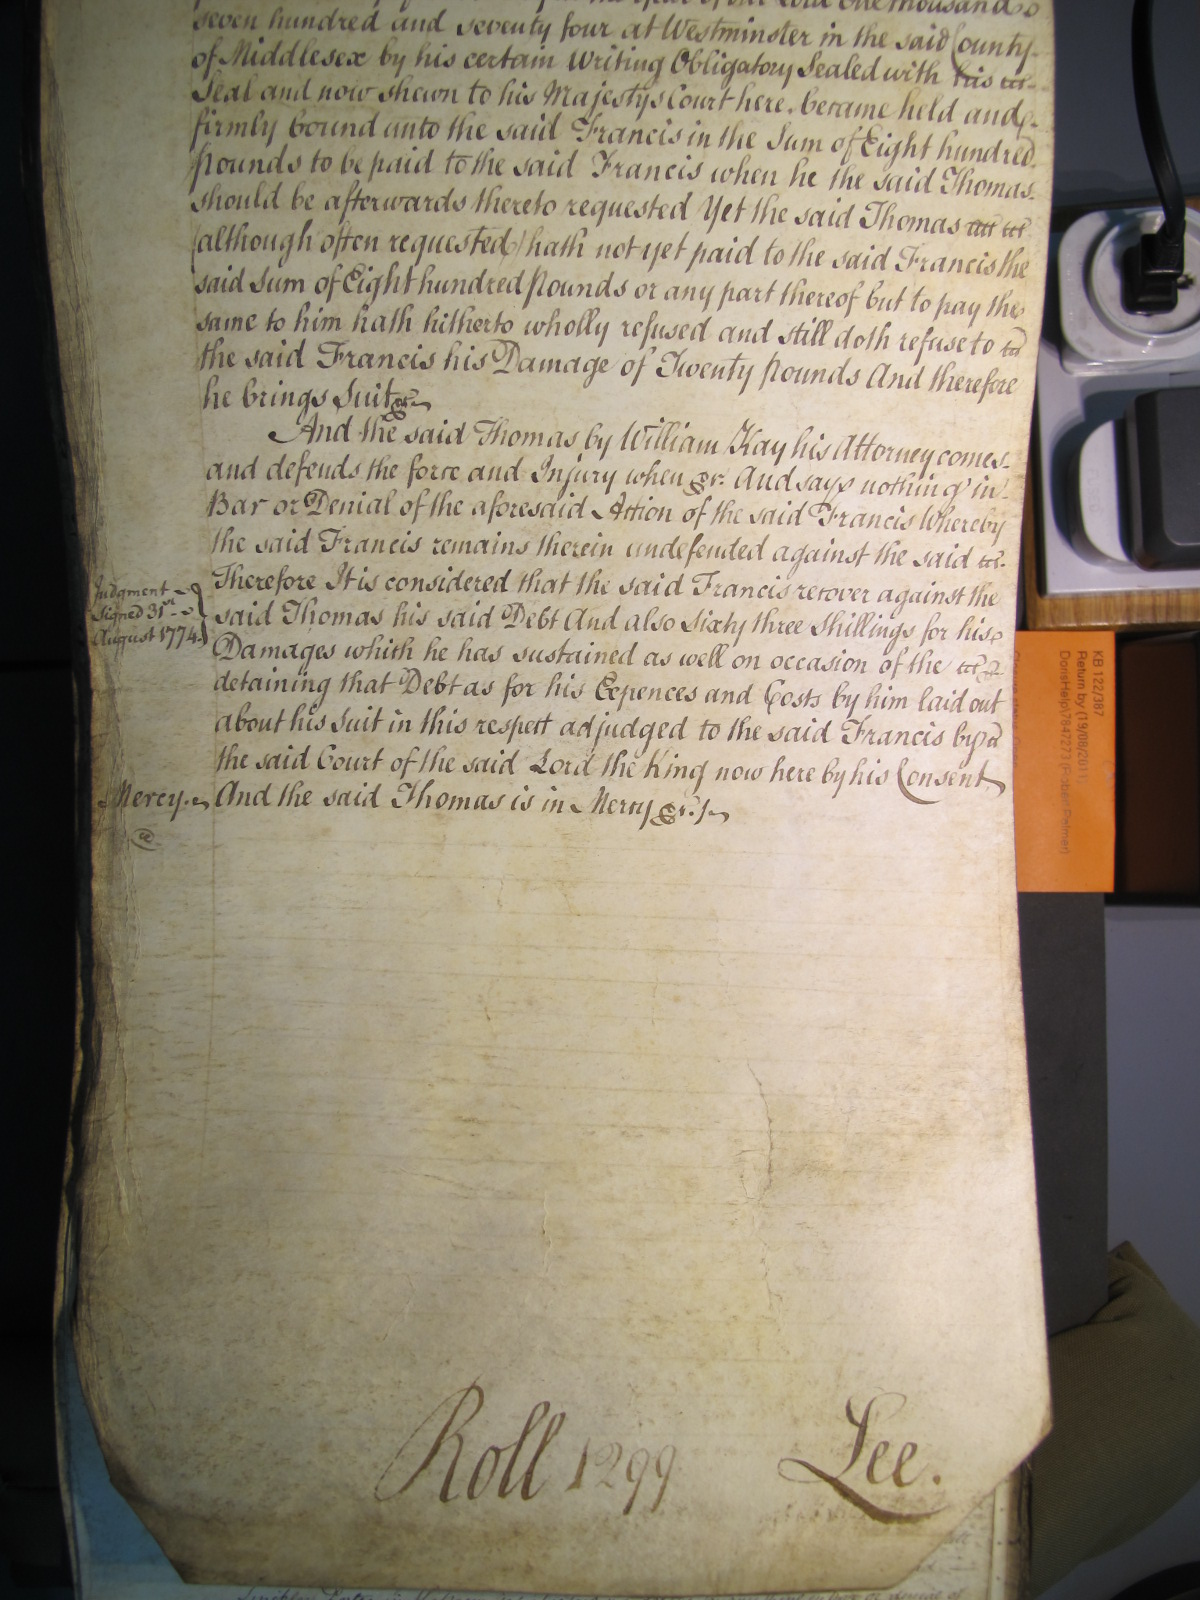 year of our Lord one thousand
seven hundred and seventy four at Westminster in the said County
of Middlesex by his certain Writing Obligatory Sealed with his
Seal and now shewn to his Majestys Court here, became held and
firmly bound unto the said Francis in the Sum of Eight hundred
Pounds to be paid to the said Francis when he the said Thomas
should be afterwards thereto requested Yet the said Thomas
(although often requested) hath not yet paid to the said Francis the
said Sum of Eight hundred Pounds or any part thereof but to pay the
same to him hath hitherto wholly refused and still doth refuse to
the said Francis his Damage of Twenty Pounds And therefore
he brings Suit &c.
And the said Thomas by William Kay his Attorney comes
and defends the force and Injury when &c. And says nothing in
Bar or Denial of the aforesaid Action of the said Francis Whereby
the said Francis remains therein undefended against the said
Therefore It is considered that the said Francis recover against the
Judgment
Signed 31st
August 1774.
said Thomas his said Debt And also Sixty three Shillings for his
Damages which he has sustained as well on occasion of the
detaining that Debt as for his Expences and Costs by him laid out
about his Suit in this respect adjudged to the said Francis by
the said Court of the said Lord the King now here by his Consent
Mercy. And the said Thomas is in Mercy &c.
Roll 1299 Lee.
KB 122/387
Return by (19/08/2011)
DorisHelp\7847273 (Robert Palmer)